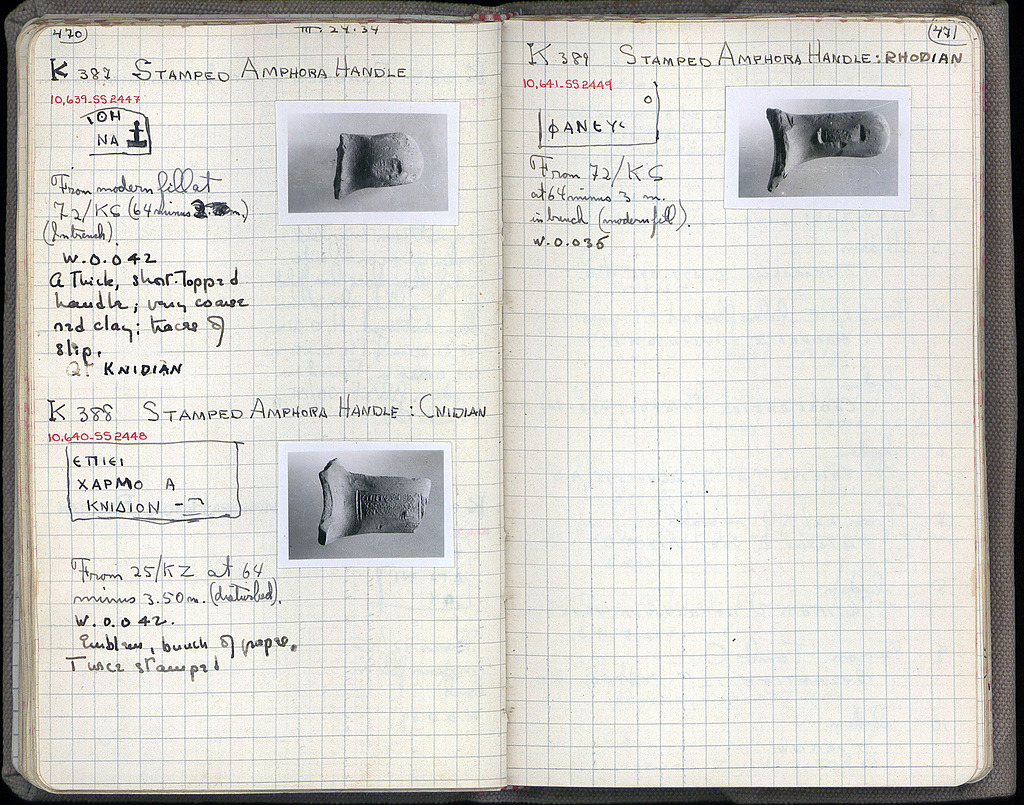 470
III-24-34
K 387 STAMPED AMPHORA HANDLE
10,639-SS 2447
ΙΟΗ
ΝΑ
From modern fill at
72/ΚϚ (64 minus m.)
(In trench).
W. 0.042
A Thick, short-Topped
handle; very coarse
red clay; traces of
slip.
KNIDIAN
K 388 STAMPED AMPHORA HANDLE: CNIDIAN
10,640-SS 2448
ЄΠΙЄΙ
ΧΑΡΜΟ Α
ΚΝΙΔΙΟΝ
From 25/ΚΖ at 64
minus 3.50 m. (disturbed).
W. 0.042.
Emblem, bunch of grapes.
Twice stamped
471
K 389 STAMPED AMPHORA HANDLE: RHODIAN
10,641-SS 2449
Ο
ΦΑΝЄΥϹ
From 72/ΚϚ
at 64 minus 3 m.
in trench (modern fill).
W. 0.035